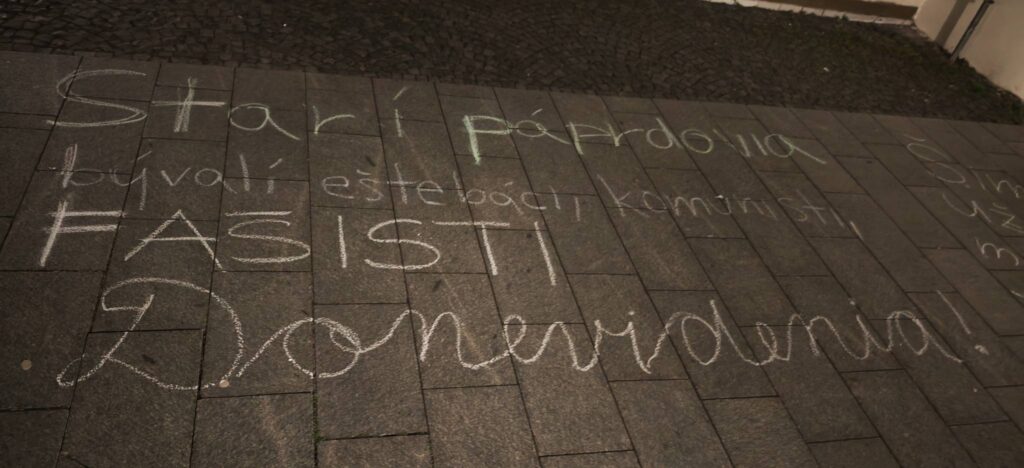 Starí páprdovia
bývalí eštebáci, komunisti,
FAŠISTI,
Donevidenia!